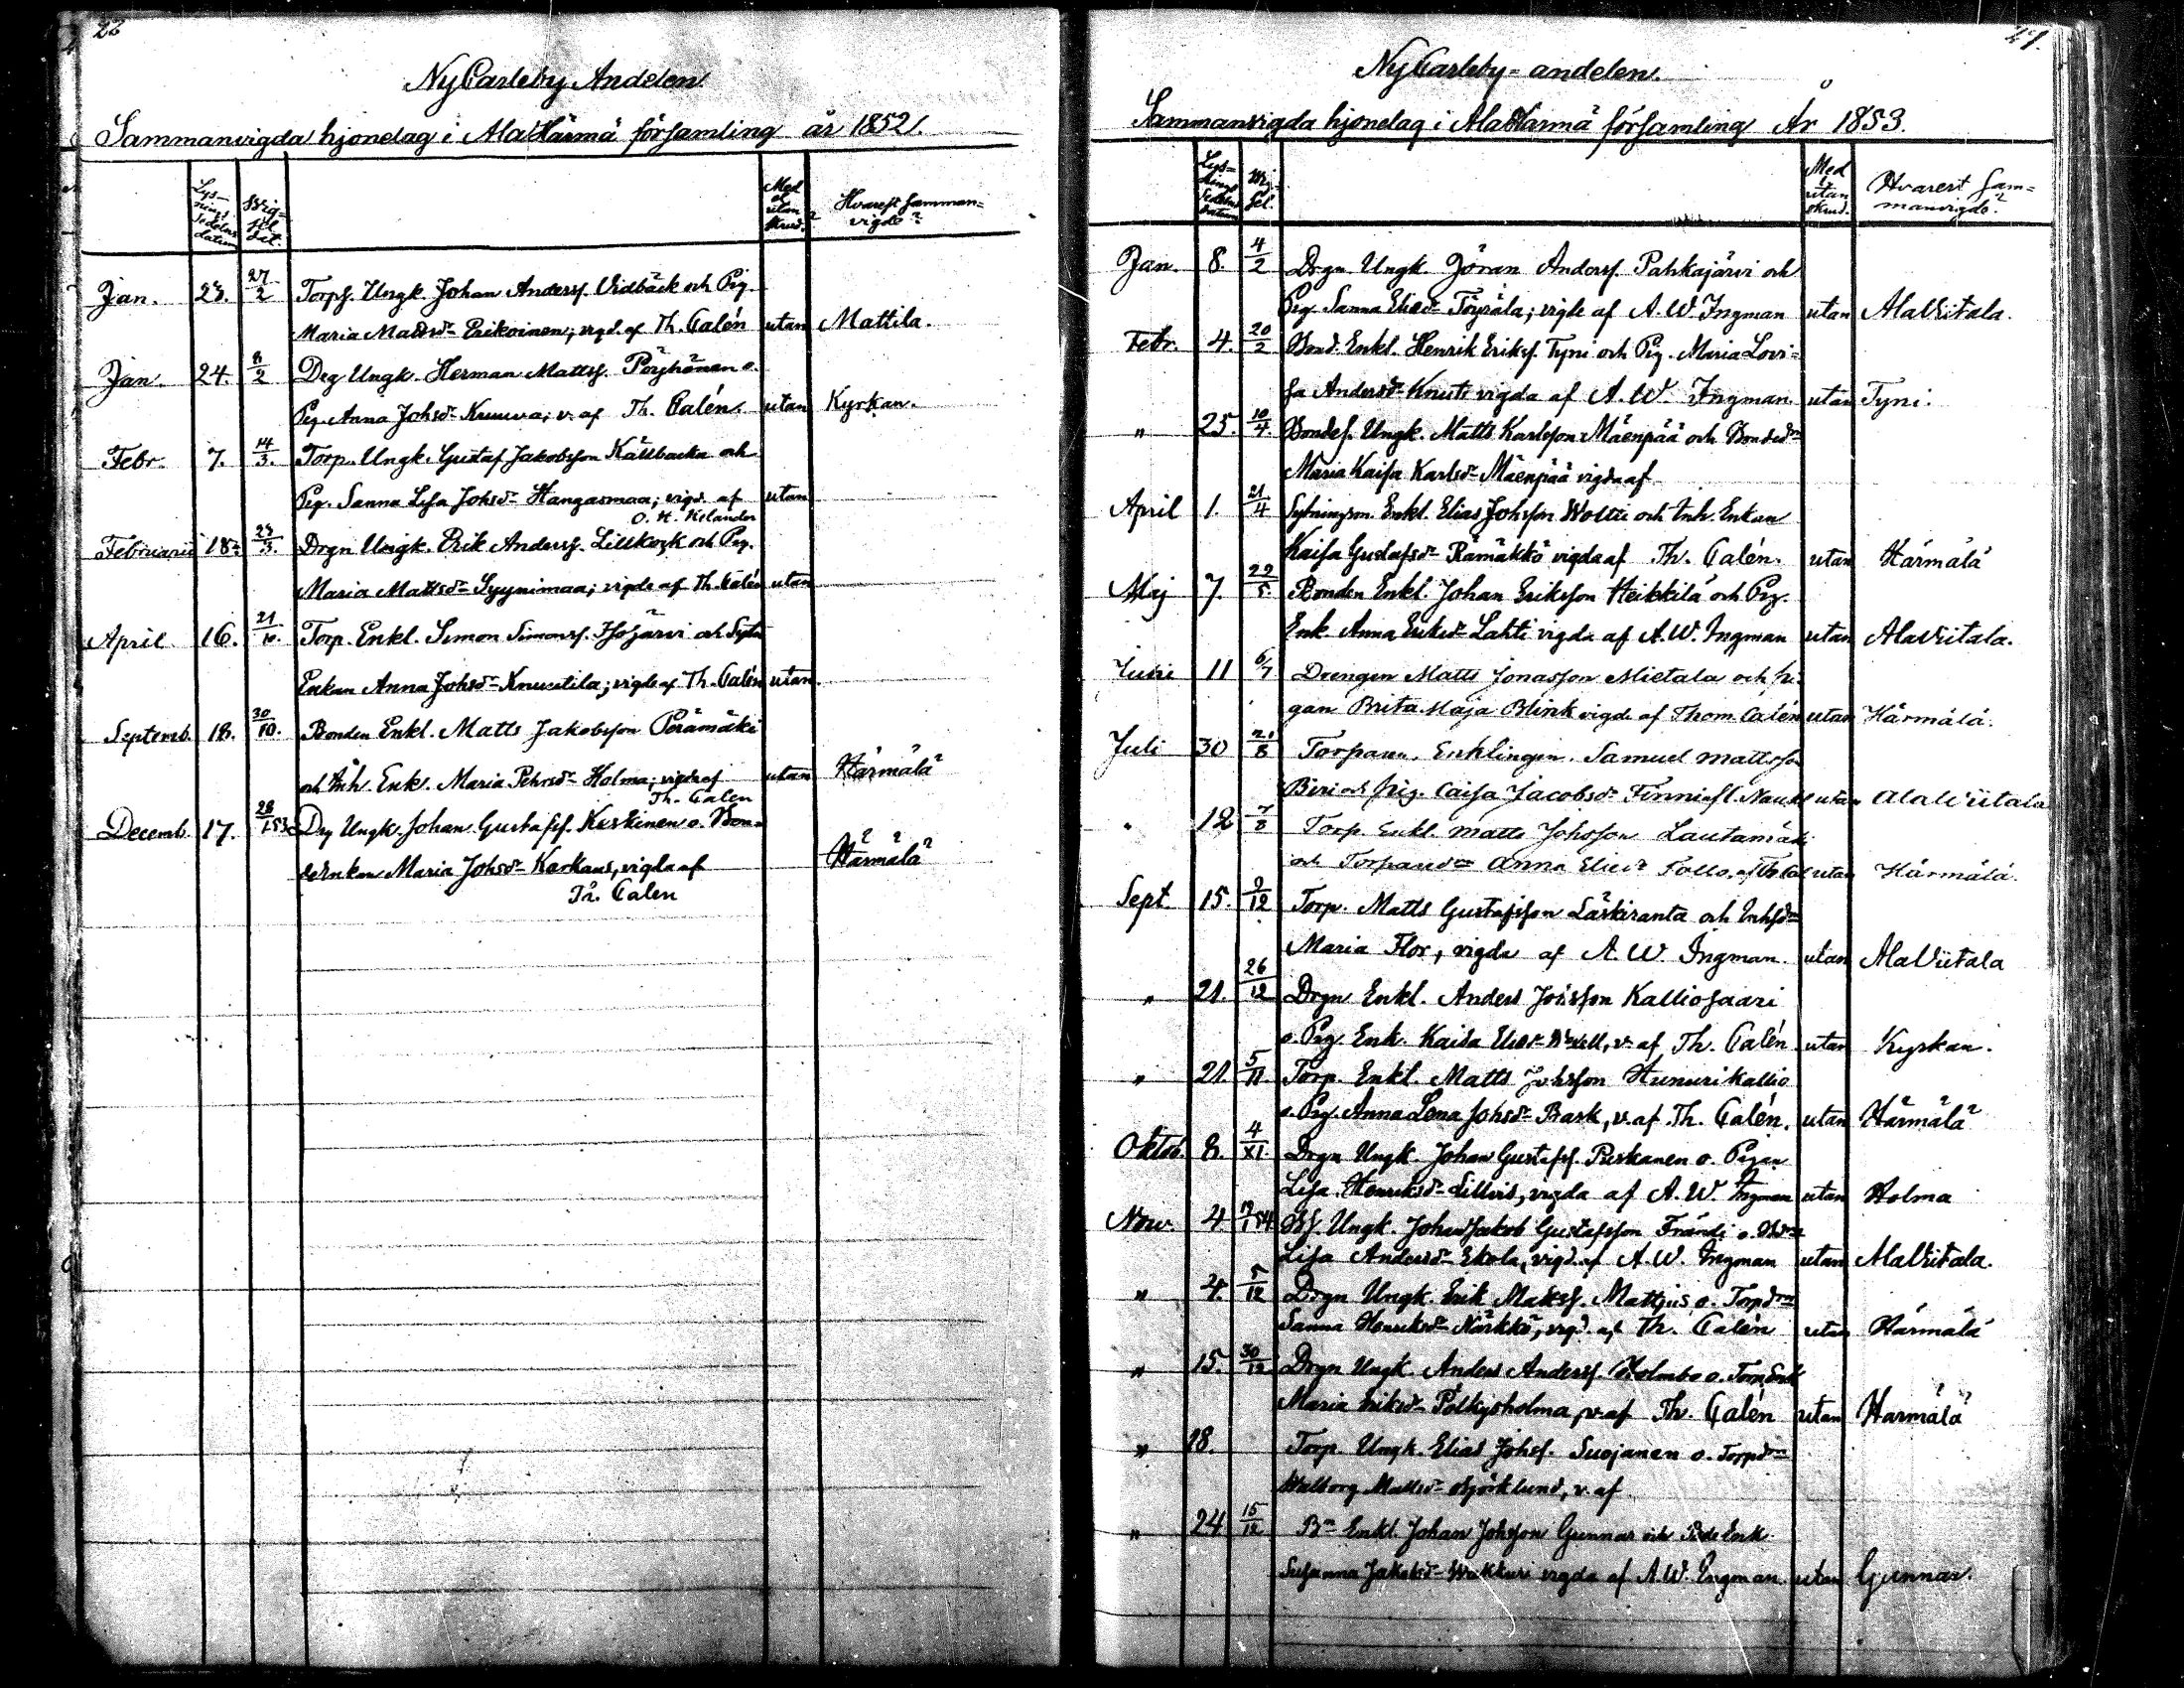 22
NyCarleby Andelen
Sammanvigda hjonelag i AlaHärmä församling år 1852.
Lys-
nings
Sedelns
datum
Vig-
sel
dat.
Med
el
utan
skrud.
Hvarest samman-
vigde?
Jan. 23. 27/2 Torps. Ungk. Johan Anderss. Vidbäck och Pig.
Maria Mattsdr Erikoinen; vigd. af Th. Calén utan Mattila.
Jan. 24. 8/2 Dräg Ungk. Herman Mattss. Pöyhönen o.
Pig. Anna Johsdr v. af Th. Calén. utan Kyrkan.
Febr. 7. 14/3. Torp. Ungk. Gustaf Jakobsson Källbacka och
Pig. Sanna Lisa Johsdr Hangasmaa; vigd. af utan
O. H. Helander
Februarii 18. 23/3. Drgn Ungk. Erik Anderss. Lillkock och Pig.
Maria Mattsdr Syynimaa; vigde af Th. Calén utan
April 16. 21/10. Torp. Enkl. Simon Simonss. Isojärvi och
Enkan Anna Johsdr Knuutila; vigde af Th. Calén utan
Septemb. 18. 30/10. Bonden Enkl. Matts Jakobsson Perämäki
och Inh. Enk. Maria Pehrsdr Holma; vigda af utan Härmälä
Th. Calen
Decemb. 17. 28/1.53 Drg Ungk. Johan Gustafss. Keskinen o. Bon-
deEnkan Maria Johsdr Karhaus, vigda af Härmälä
Th. Calen
41.
NyCarleby-andelen.
Sammanvigda hjonelag i AlaHärmä församling År 1853.
Lys-
nings
Sedelns
datum
Vig-
sel.
Med
l.
utan
skrud.
Hvarest sam-
manvigde?
Jan. 8. 4/2 Drgn Ungk Jöran Anderss. Pahkajärvi och
Pig. Sanna Eliedr Töyrälä; vigde af A. W. Ingman utan AlaViitala.
Febr. 4. 20/2 Bond. Enkl. Henrik Erikss. Tyni och Pig. Maria Lovi-
sa Andersdr Knuts vigda af A. W. Ingman utan Tyni.
" 25. 10/4. Bondes. Ungk. Matts Karlsson Mäenpää och Bondedr
Maria Kaisa Karlsdr Mäenpää vigda af
April 1. 21/4 Sytningsm. Enkl. Elias Johsson Woltti och Inh. Enkan
Kaisa Gustafsdr Rämäkkö vigda af Th. Calén. utan Härmälä
Maj 7. 22/5. Bonden Enkl. Johan Eriksson Heikkilä och Pig.
Enk. Anna Eriksdr Lahti vigda af A. W. Ingman utan AlaViitala.
Juni 11 6/7 Drengen Matts Jonasson Mietala och pi-
gan Brita Maja Blink vigde af Thom. Calén utan Härmälä.
Juli 30 21/8 Torparen, Enklingen, Samuel Mattsson
och pig. Caisa Jacobsdr utan AlaWiitala
" 12 7/8 Torp. Enkl. Matts Johsson Lautamäki
och Torparedr Anna Eliedr utan Härmälä.
Sept. 15. 9/12 Torp. Matts Gustafsson Särkiranta och Inhsdr
Maria Flor, vigda af A. W. Ingman. utan AlaViitala
" 21. 26/12 Drgn Enkl. Anders Johsson Kalliosaari
o. Pig. Enk. Kaisa v. af Th. Calén utan Kyrkan.
" 21. 5/11. Torp. Enkl. Matts Johsson Hunurikallio
o. Pig. Anna Lena Johsdr Bask, v. af Th. Calén. utan Härmälä
Oktob. 8. 4/XI. Drgn Ungk. Johan Gustafss. Puskanen o. Pigan
Lisa Henriksdr Lillvis, vigda af A. W. Ingman utan Holma
Nov. 4 Bs. Ungk. Johan Jakob Gustafsson Frändi o. Bdr
Lisa Andersdr Ekola, vigd. af A. W. Ingman utan AlaViitala.
" 4. 5/12 Drgn Ungk. Erik Mattss. Mattjus o. Torpdr
Sanna Henriksdr Närkkö, vigd. af Th. Calén utan Härmälä
" 15. 30/12 Drgn Ungk. Anders Anderss. Holmbo o. Torp Enk
Maria Eriksdr Pölkyoholma, v. af Th. Calén utan Härmälä
" 18 Torp Ungk. Elias Johss. Suojanen o. Torpdr
Walborg Mattsdr Björklund, v. af
" 24 15/12 Bn Enkl. Johan Johsson Gunnar och Bde Enk.
Susanna Jakobsdr Wäkkuri vigda af A. W. Engman utan Gunnar.